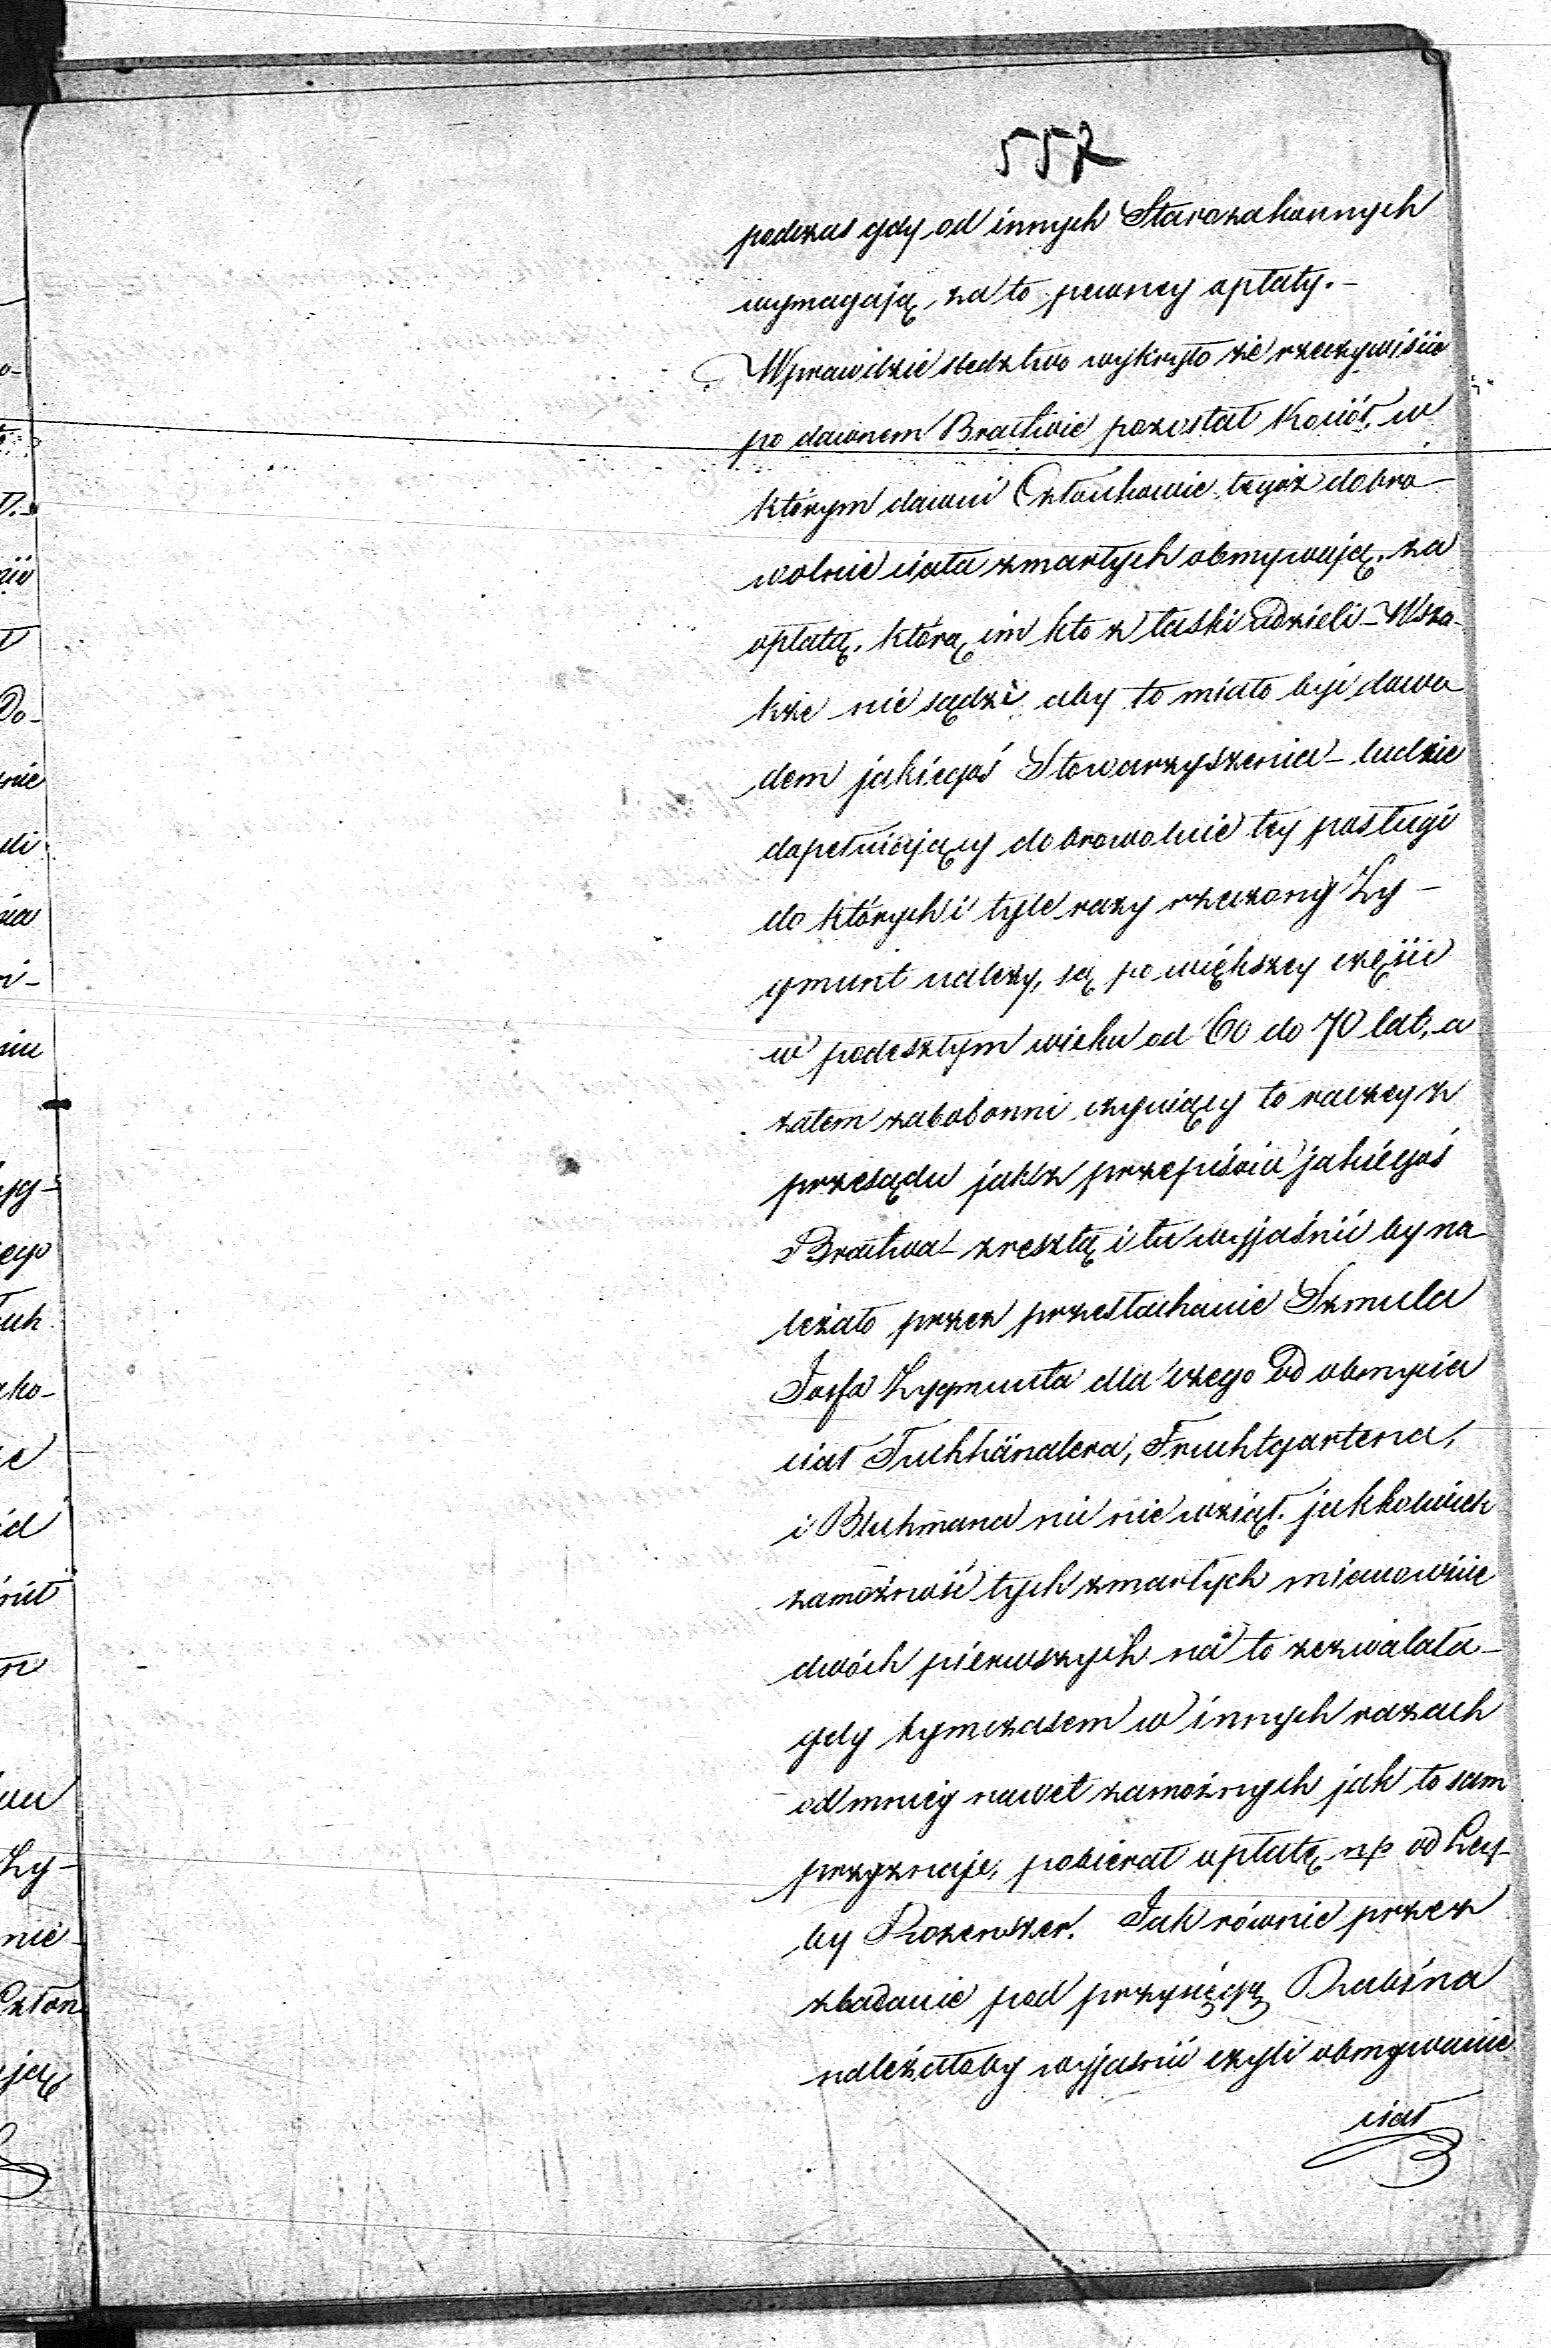 557
podczas gdy od innych Starozakonnych
wymagają za to pewney opłaty. –
Wprawdzie śledztwo wykryło że rzeczywiście
po dawnem Bractwie pozostał Kocioł, w
którym dawni Członkowie tegoż dobro-
wolnie ciała zmarłych obmywają, za
opłatą, którą im kto z łaski udzieli – Wsza-
kże nie sądzę aby to miało być dowo
dem jakiegoś Stowarzyszenia – ludzie
dopełniający dobrowolnie tey posługi
do których i tyle razy rzeczony Zy-
gmunt należy, są po większey części
w podeszłym wieku od 60 do 70 lat, a
zatem zabobonni czyniący to raczey z
przesądu jak z przepisów jakiegoś
Bractwa – zresztą i tu wyjaśnić by na
leżało przez przesłuchanie Szmula
Josfa Zygmunta dla czego od obmycia
ciał Tuchhändlera, Fruchtgartena,
i Bluhmana nic nie wziął, jakkolwiek
zamożność tych zmarłych mianowicie
dwóch pierwszych na to zezwalała –
gdy tymczasem w innych razach
od mniey nawet zamożnych jak to sam
przyznaje, pobierał opłatę np od Ley-
by Rozenszer. Jak równie przez
zbadanie pod przysięgą Rabina
należałoby wyjaśnić czyli obmywanie
ciał
o-
D.
Do-
nie
ego
ko-
Zy-
nie
Człon
ją